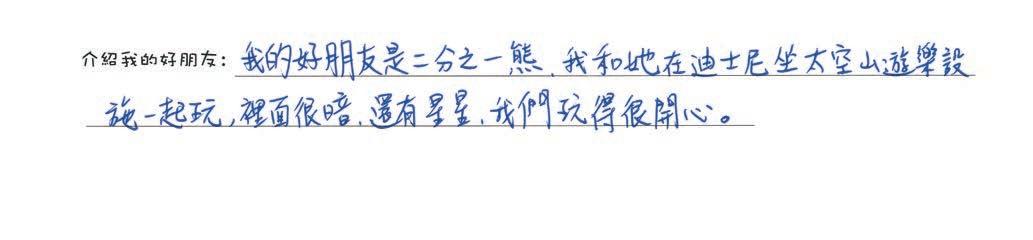 介紹我的好朋友：我的好朋友是二分之一熊，我和她在迪士尼坐太空山遊樂設
施一起玩，裡面很暗，還有星星，我們玩得很開心。